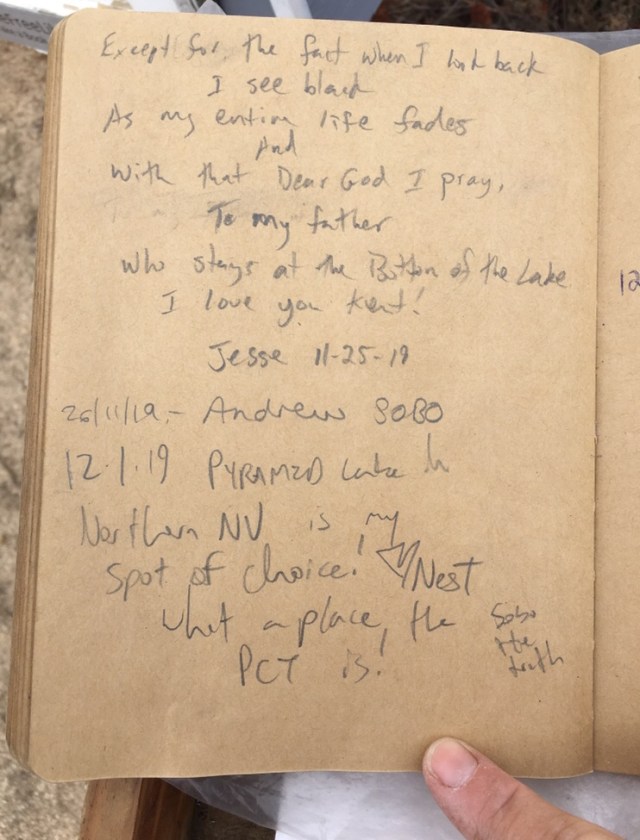 Except for the fact when I look back
I see black
As my entire life fades
And
With that Dear God I pray,
To my father
Who stays at the Bottom of the Lake
I love you Kent!
Jesse 11-25-19
26/11/19 - Andrew SOBO
12.1.19 PYRAMID Lake in
Northern NV is my
spot of choice!
Nest
what a place, the
PCT is!
Sobo
the
truth
12